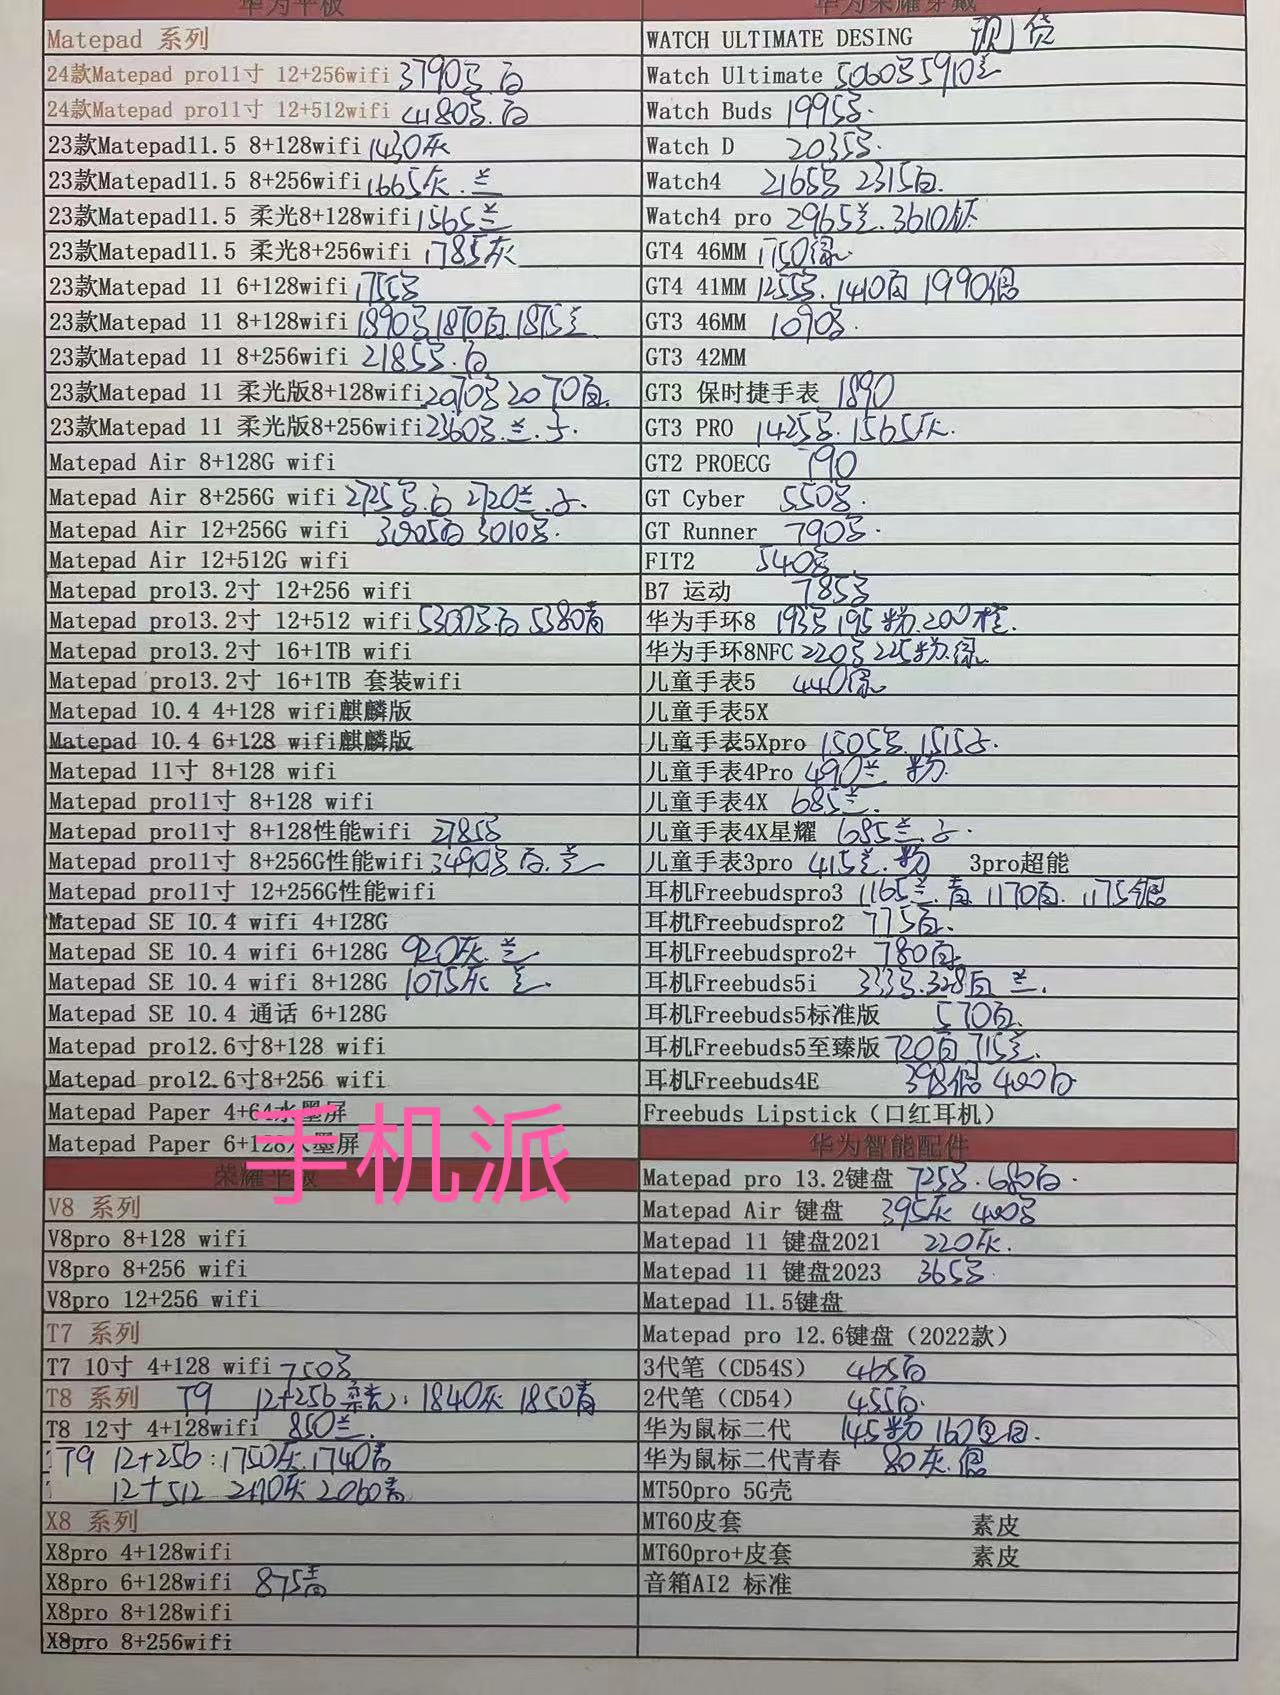 华为平板
Matepad 系列
24款Matepad pro11寸 12+256wifi 3790 白
24款Matepad pro11寸 12+512wifi 4180 白
23款Matepad11.5 8+128wifi 1430灰
23款Matepad11.5 8+256wifi 1665灰.兰
23款Matepad11.5 柔光8+128wifi 1565兰
23款Matepad11.5 柔光8+256wifi 1785灰
23款Matepad 11 6+128wifi 1755
23款Matepad 11 8+128wifi 1870白 1875兰
23款Matepad 11 8+256wifi 2185 白
23款Matepad 11 柔光版8+128wifi 2070白
23款Matepad 11 柔光版8+256wifi 2360 兰
Matepad Air 8+128G wifi
Matepad Air 8+256G wifi 2725 白 2720兰
Matepad Air 12+256G wifi 3010
Matepad Air 12+512G wifi
Matepad pro13.2寸 12+256 wifi
Matepad pro13.2寸 12+512 wifi 白 5380青
Matepad pro13.2寸 16+1TB wifi
Matepad pro13.2寸 16+1TB 套装wifi
Matepad 10.4 4+128 wifi麒麟版
Matepad 10.4 6+128 wifi麒麟版
Matepad 11寸 8+128 wifi
Matepad pro11寸 8+128 wifi
Matepad pro11寸 8+128性能wifi 2785
Matepad pro11寸 8+256G性能wifi 3490 白.兰
Matepad pro11寸 12+256G性能wifi
Matepad SE 10.4 wifi 4+128G
Matepad SE 10.4 wifi 6+128G 920灰.兰
Matepad SE 10.4 wifi 8+128G 1075灰 兰
Matepad SE 10.4 通话 6+128G
Matepad pro12.6寸8+128 wifi
Matepad pro12.6寸8+256 wifi
Matepad Paper 4+64水墨屏
Matepad Paper 6+128水墨屏
手机派
荣耀平板
V8 系列
V8pro 8+128 wifi
V8pro 8+256 wifi
V8pro 12+256 wifi
T7 系列
T7 10寸 4+128 wifi 750
T8 系列 T9 12+256柔光: 1840灰 1850青
T8 12寸 4+128wifi 850兰.
T9 12+256:1750灰.1740青
12+512 灰 2060青
X8 系列
X8pro 4+128wifi
X8pro 6+128wifi 875青
X8pro 8+128wifi
X8pro 8+256wifi
华为荣耀穿戴
WATCH ULTIMATE DESING 现货
Watch Ultimate 5060 5910兰
Watch Buds 1995
Watch D 2035
Watch4 2165 2315白.
Watch4 pro 2965兰.3610钛
GT4 46MM 1150绿.
GT4 41MM 1255 1410白 1990银
GT3 46MM 1090
GT3 42MM
GT3 保时捷手表 1890
GT3 PRO 1425 1565灰.
GT2 PROECG 790
GT Cyber 550
GT Runner 790
FIT2 540
B7 运动 785
华为手环8 193 195粉.200橙.
华为手环8NFC 220 225粉.绿
儿童手表5 440绿
儿童手表5X
儿童手表5Xpro 1505 1515
儿童手表4Pro 490兰 粉.
儿童手表4X 685兰.
儿童手表4X星耀 685兰
儿童手表3pro 415兰.粉 3pro超能
耳机Freebudspro3 1165兰.青.1170白.1175银
耳机Freebudspro2 775白.
耳机Freebudspro2+ 780白.
耳机Freebuds5i 333 328白 兰.
耳机Freebuds5标准版 570白.
耳机Freebuds5至臻版 720白 715兰.
耳机Freebuds4E 398银 400白
Freebuds Lipstick（口红耳机）
华为智能配件
Matepad pro 13.2键盘 725 680白.
Matepad Air 键盘 395灰 400
Matepad 11 键盘2021 220灰.
Matepad 11 键盘2023 365
Matepad 11.5键盘
Matepad pro 12.6键盘（2022款）
3代笔（CD54S） 465白
2代笔（CD54） 455白.
华为鼠标二代 145粉 160
华为鼠标二代青春 80灰.银
MT50pro 5G壳
MT60皮套 素皮
MT60pro+皮套 素皮
音箱AI2 标准